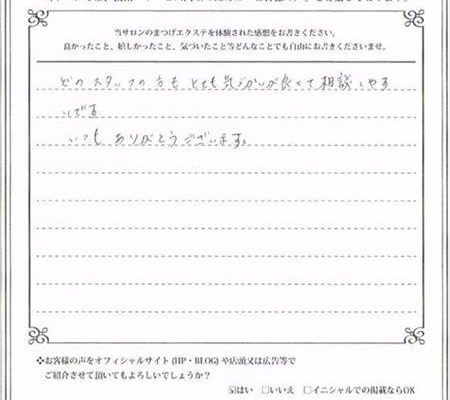 当サロンのまつげエクステを体験された感想をお書きください。
良かったこと、嬉しかったこと、気づいたこと等どんなことでも自由にお書きくださいませ。
どのスタッフの方もとても気づかいが良くて相談しやす
いです
いつもありがとうございます。
❖お客様の声をオフィシャルサイト(HP・BLOG)や店頭又は広告等で
ご紹介させて頂いてもよろしいでしょうか？
☑はい □いいえ □イニシャルでの掲載ならOK